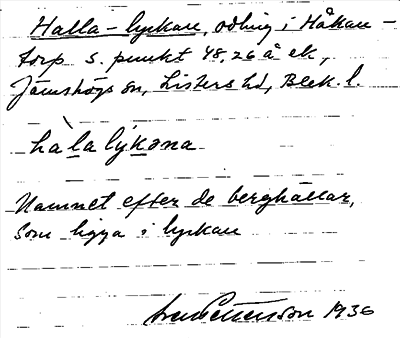 Halla-lyckan, odling i Håkan-
torp s. punkt 48,26 å ek,
Jämshögs sn, Listers hd, Blek. l.
hàlalýkəna
Namnet efter de berghällar,
som ligga i lyckan
1936